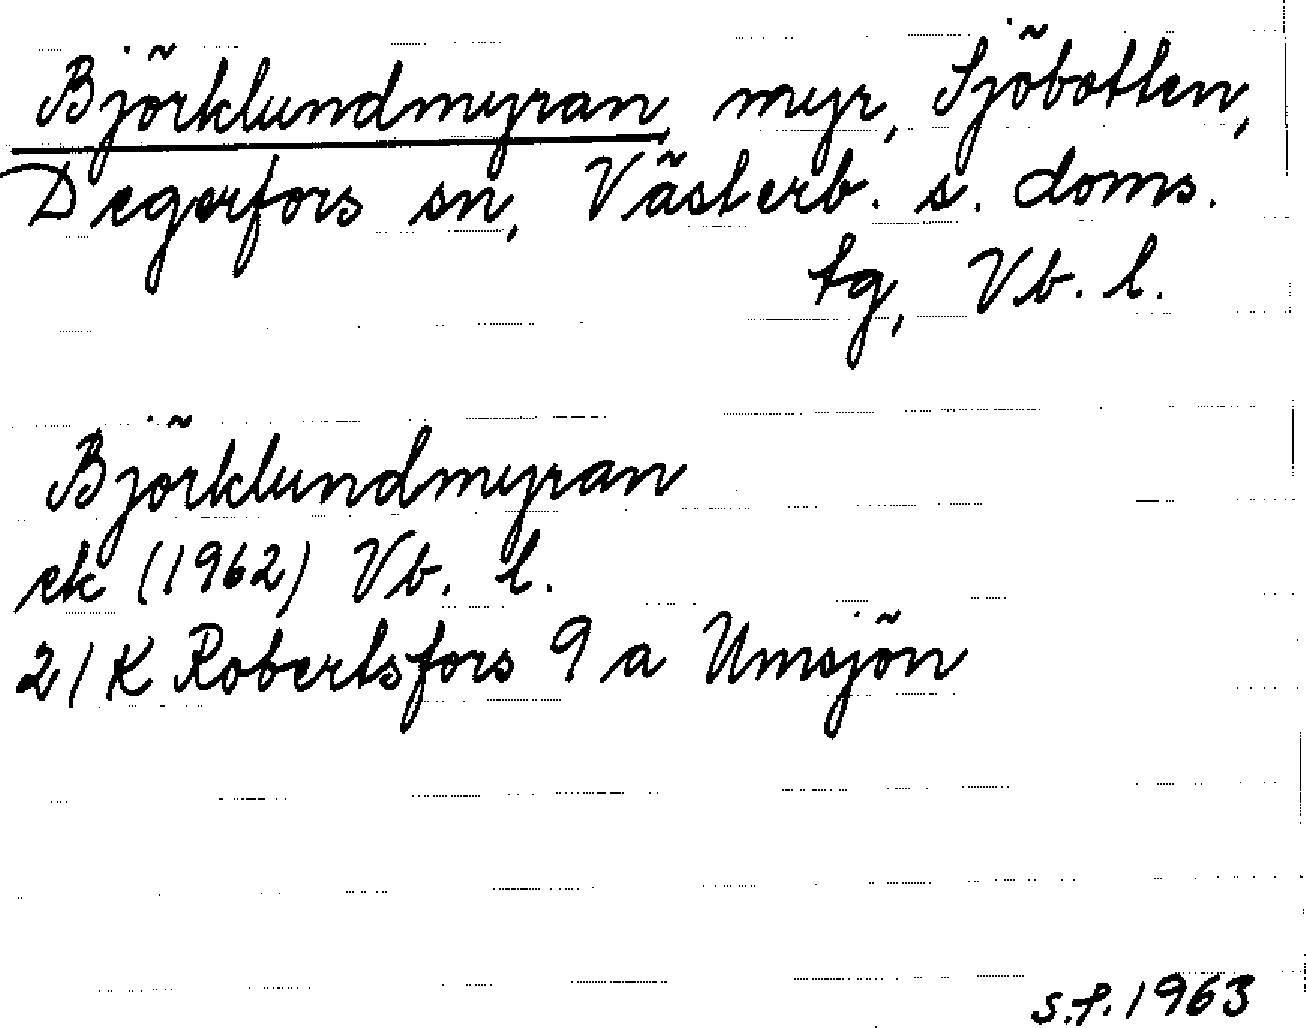 Björklundmyran, myr, Sjöbotten,
Degerfors sn, Västerb. s. doms.
tg, Vb. l.
Björklundmyran
ek (1962) Vb. l.
21 K Robertsfors 9 a Umsjön
s.f. 1963